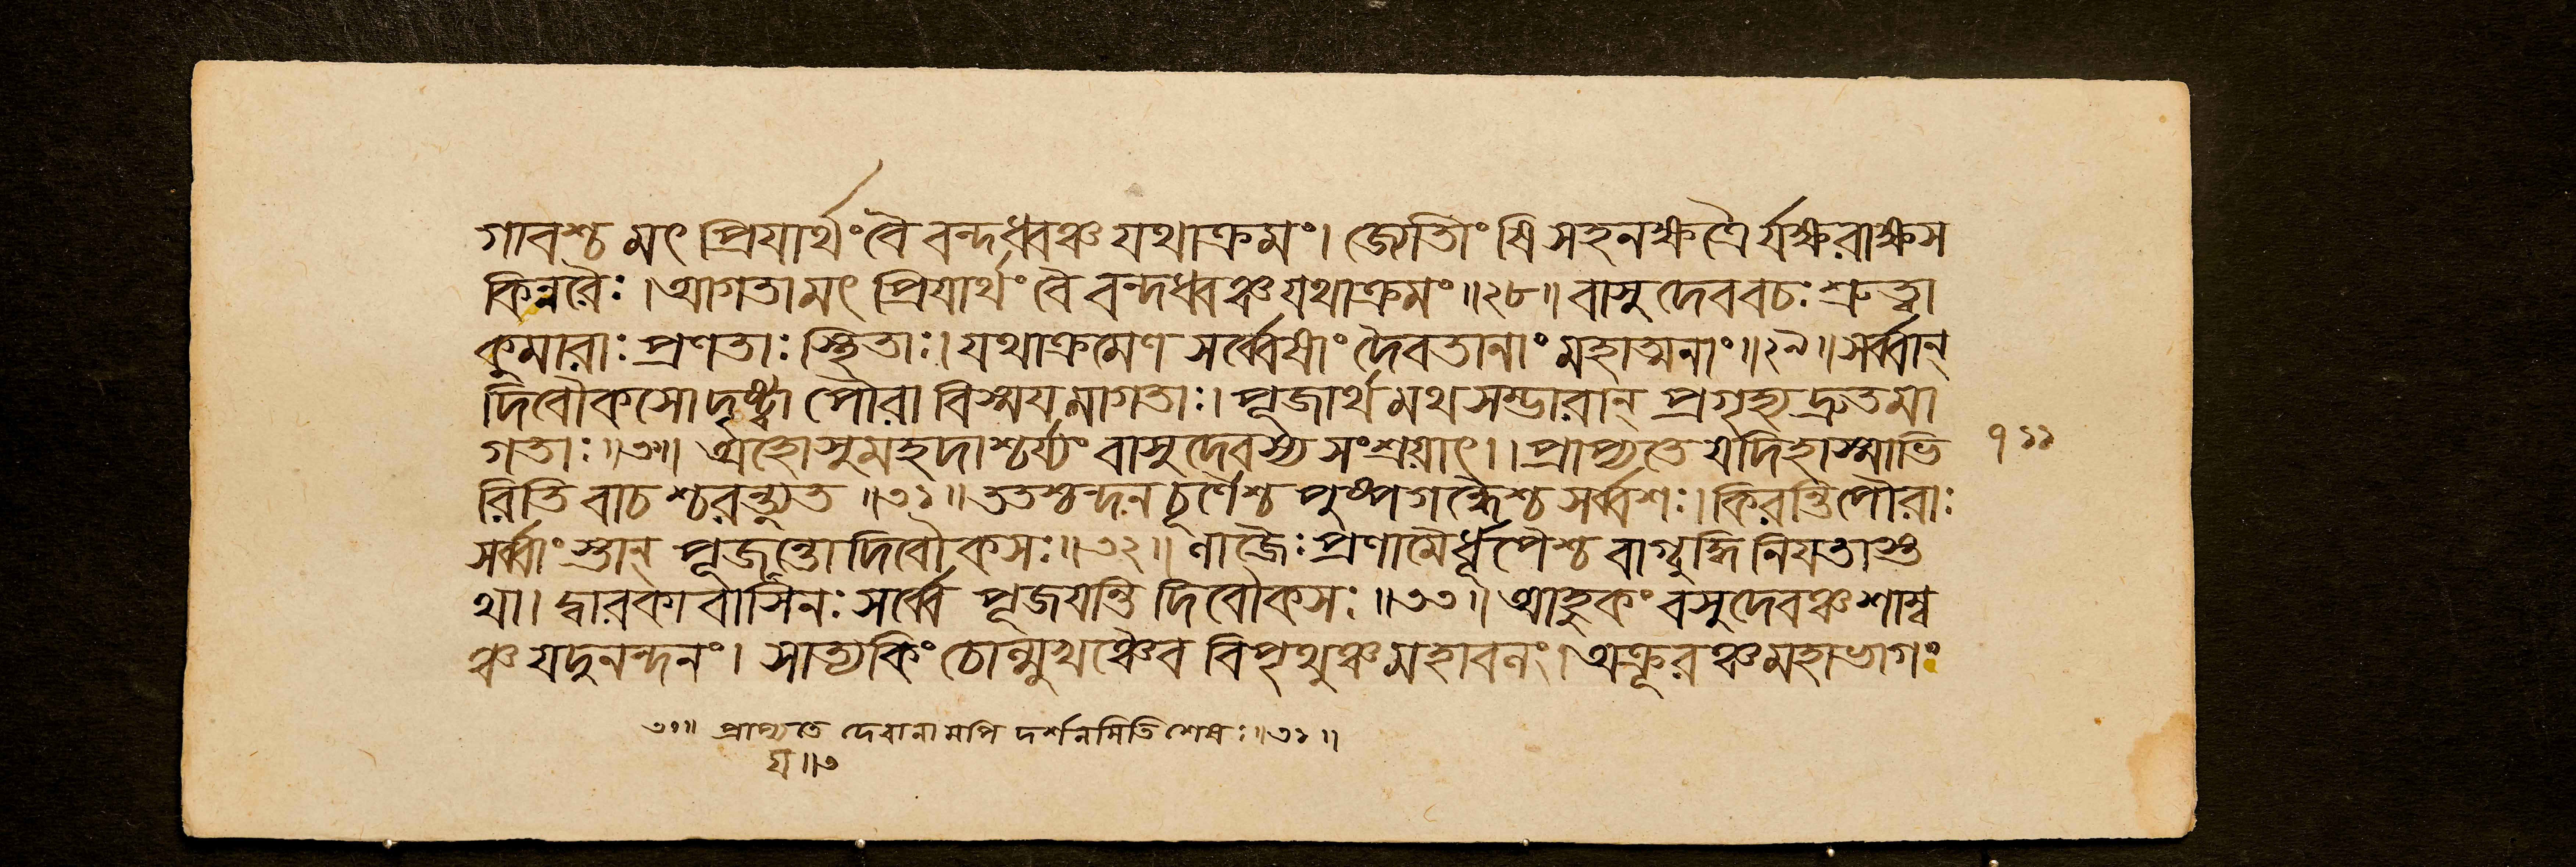 গাবশ্চ মৎ প্রিযার্থং বৈ বন্দধ্বঞ্চ যথাক্রমং। জ্যেতিাংষি সহনক্ষত্রৈর্যক্ষরাক্ষস
কিন্নরৈঃ। আগতামৎ প্রিযার্থং বৈ বন্দধ্বঞ্চ যথাক্রমং॥২৮॥ বাসুদেববচঃ শ্রুত্বা
কুমারাঃ প্রণতাঃ স্থিতাঃ। যথাক্রমেণ সর্ব্বেষাং দৈবতানাং মহাত্মনাং॥২৯॥ সর্ব্বান্
দিবৌকসো দৃষ্ট্বা পৌরা বিস্ময়মাগতাঃ। পূজার্থমথ সম্ভারান্ প্রগৃহ্য দ্রুতমা
গতাঃ॥৩০॥ অহো সুমহদাশ্চর্য্যং বাসুদেবস্য সংশ্রয়াৎ।। প্রাপ্যতে যদিহাস্মাভি
রিতি বাচশ্চরন্ত্যুত॥৩১॥ ততশ্চন্দনচূর্ণৈশ্চ পুষ্পগন্ধৈশ্চ সর্ব্বশঃ। কিরন্তি পৌরাঃ
সর্ব্বাংস্তান্ পূজন্তো দিবৌকসঃ॥৩২॥ লাজৈঃ প্রণামৈর্ধূপৈশ্চ বাগ্বুদ্ধিনিযতাস্ত
থা। দ্বারকাবাসিনঃ সর্ব্বে পূজযন্তি দিবৌকসঃ॥৩৩॥ আহুকং বসুদেবঞ্চ শাম্ব
ঞ্চ যদুনন্দনং। সাত্যকিং চোন্মুখঞ্চৈব বিপৃথুঞ্চ মহাবলং। অক্রূরঞ্চ মহাভাগং
৭১১
৩০॥ প্রাপ্যতে দেবানামপি দর্শনমিতি শেষঃ॥৩১॥